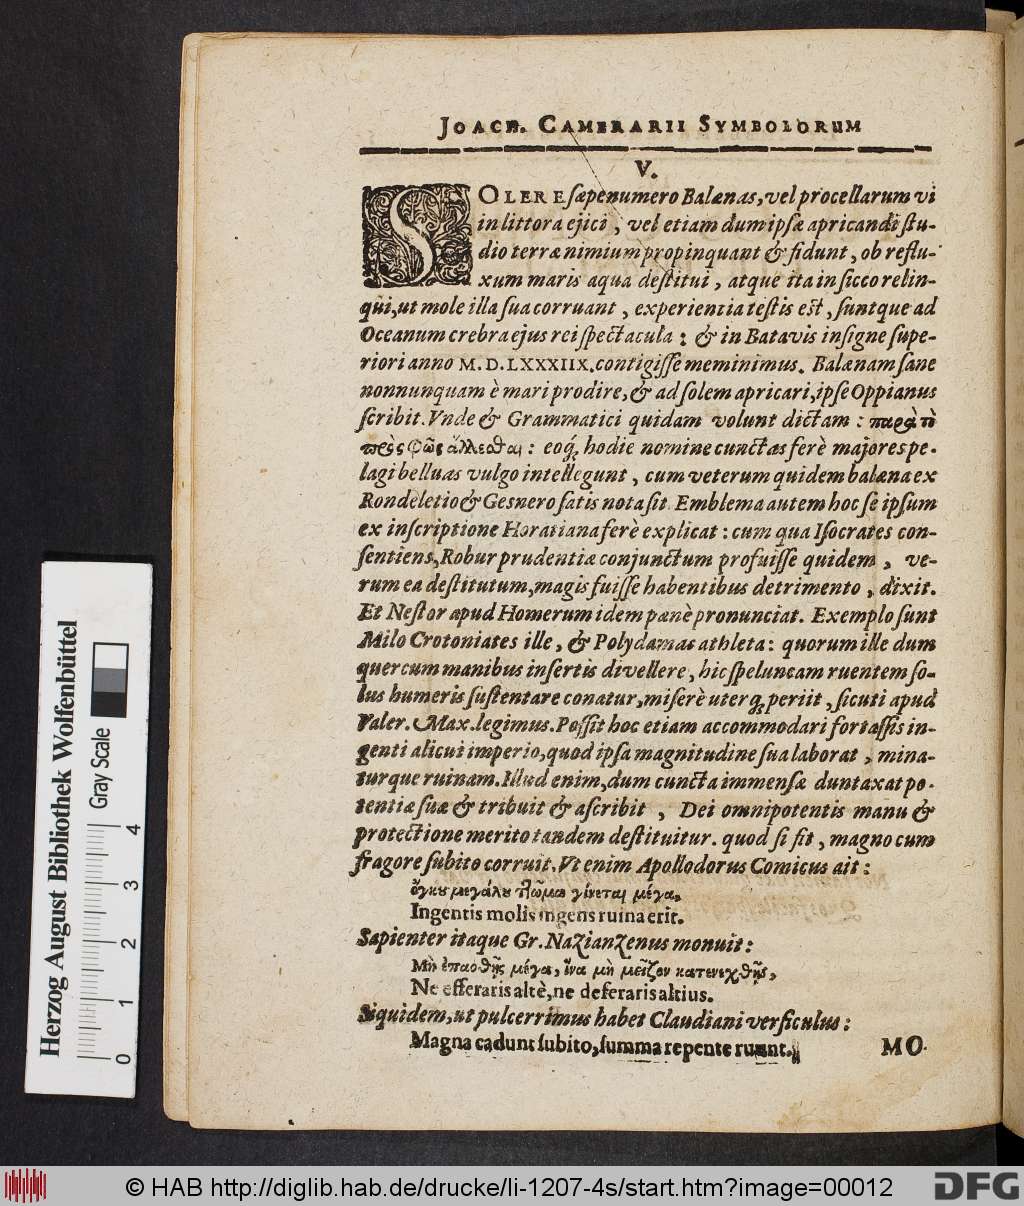 JOACH. CAMERARII SYMBOLORUM
V.
SOLERE sæpenumero Balænas, vel procellarum vi
in littora ejici, vel etiam dum ipsæ apricandi stu-
dio terræ nimium propinquant & fidunt, ob reflu-
xum maris aqua destitui, atque ita in sicco relin-
qui, ut mole illa sua corruant, experientia testis est, suntque ad
Oceanum crebra ejus rei spectacula: & in Batavis insigne supe-
riori anno M. D. LXXXIIX. contigisse meminimus. Balænam sane
nonnunquam è mari prodire, & ad solem apricari, ipse Oppianus
scribit. Vnde & Grammatici quidam volunt dictam: παρὰ τὸ
πρὸς φῶς ἅλλεσθαι: eoq́; hodie nomine cunctas ferè majores pe-
lagi belluas vulgo intellegunt, cum veterum quidem balæna ex
Rondeletio & Gesnero satis nota sit. Emblema autem hoc se ipsum
ex inscriptione Horatiana ferè explicat: cum qua Isocrates con-
sentiens, Robur prudentiæ conjunctum profuisse quidem, ve-
rum ea destitutum, magis fuisse habentibus detrimento, dixit.
Et Nestor apud Homerum idem pænè pronunciat. Exemplo sunt
Milo Crotoniates ille, & Polydamas athleta: quorum ille dum
quercum manibus insertis divellere, hic speluncam ruentem so-
lus humeris sustentare conatur, miserè uterq; periit, sicuti apud
Valer. Max. legimus. Possit hoc etiam accommodari fortassis in-
genti alicui imperio, quod ipsa magnitudine sua laborat, mina-
turque ruinam. Illud enim, dum cuncta immensæ duntaxat po-
tentiæ suæ & tribuit & ascribit, Dei omnipotentis manu &
protectione merito tandem destituitur. quod si fit, magno cum
fragore subito corruit. Vt enim Apollodorus Comicus ait:
ὄγκου μεγάλου πτῶμα γίνεται μέγα.
Ingentis molis ingens ruina erit.
Sapienter itaque Gr. Nazianzenus monuit:
Μὴ ἐπαρθῇς μέγα, ἵνα μὴ μεῖζον κατενεχθῇς,
Ne efferaris altè, ne deferaris altius.
Siquidem, ut pulcerrimus habet Claudiani versiculus:
Magna cadunt subito, summa repente ruunt.
MO.
Herzog August Bibliothek Wolfenbüttel
Gray Scale
0 1 2 3 4
© HAB http://diglib.hab.de/drucke/li-1207-4s/start.htm?image=00012
DFG